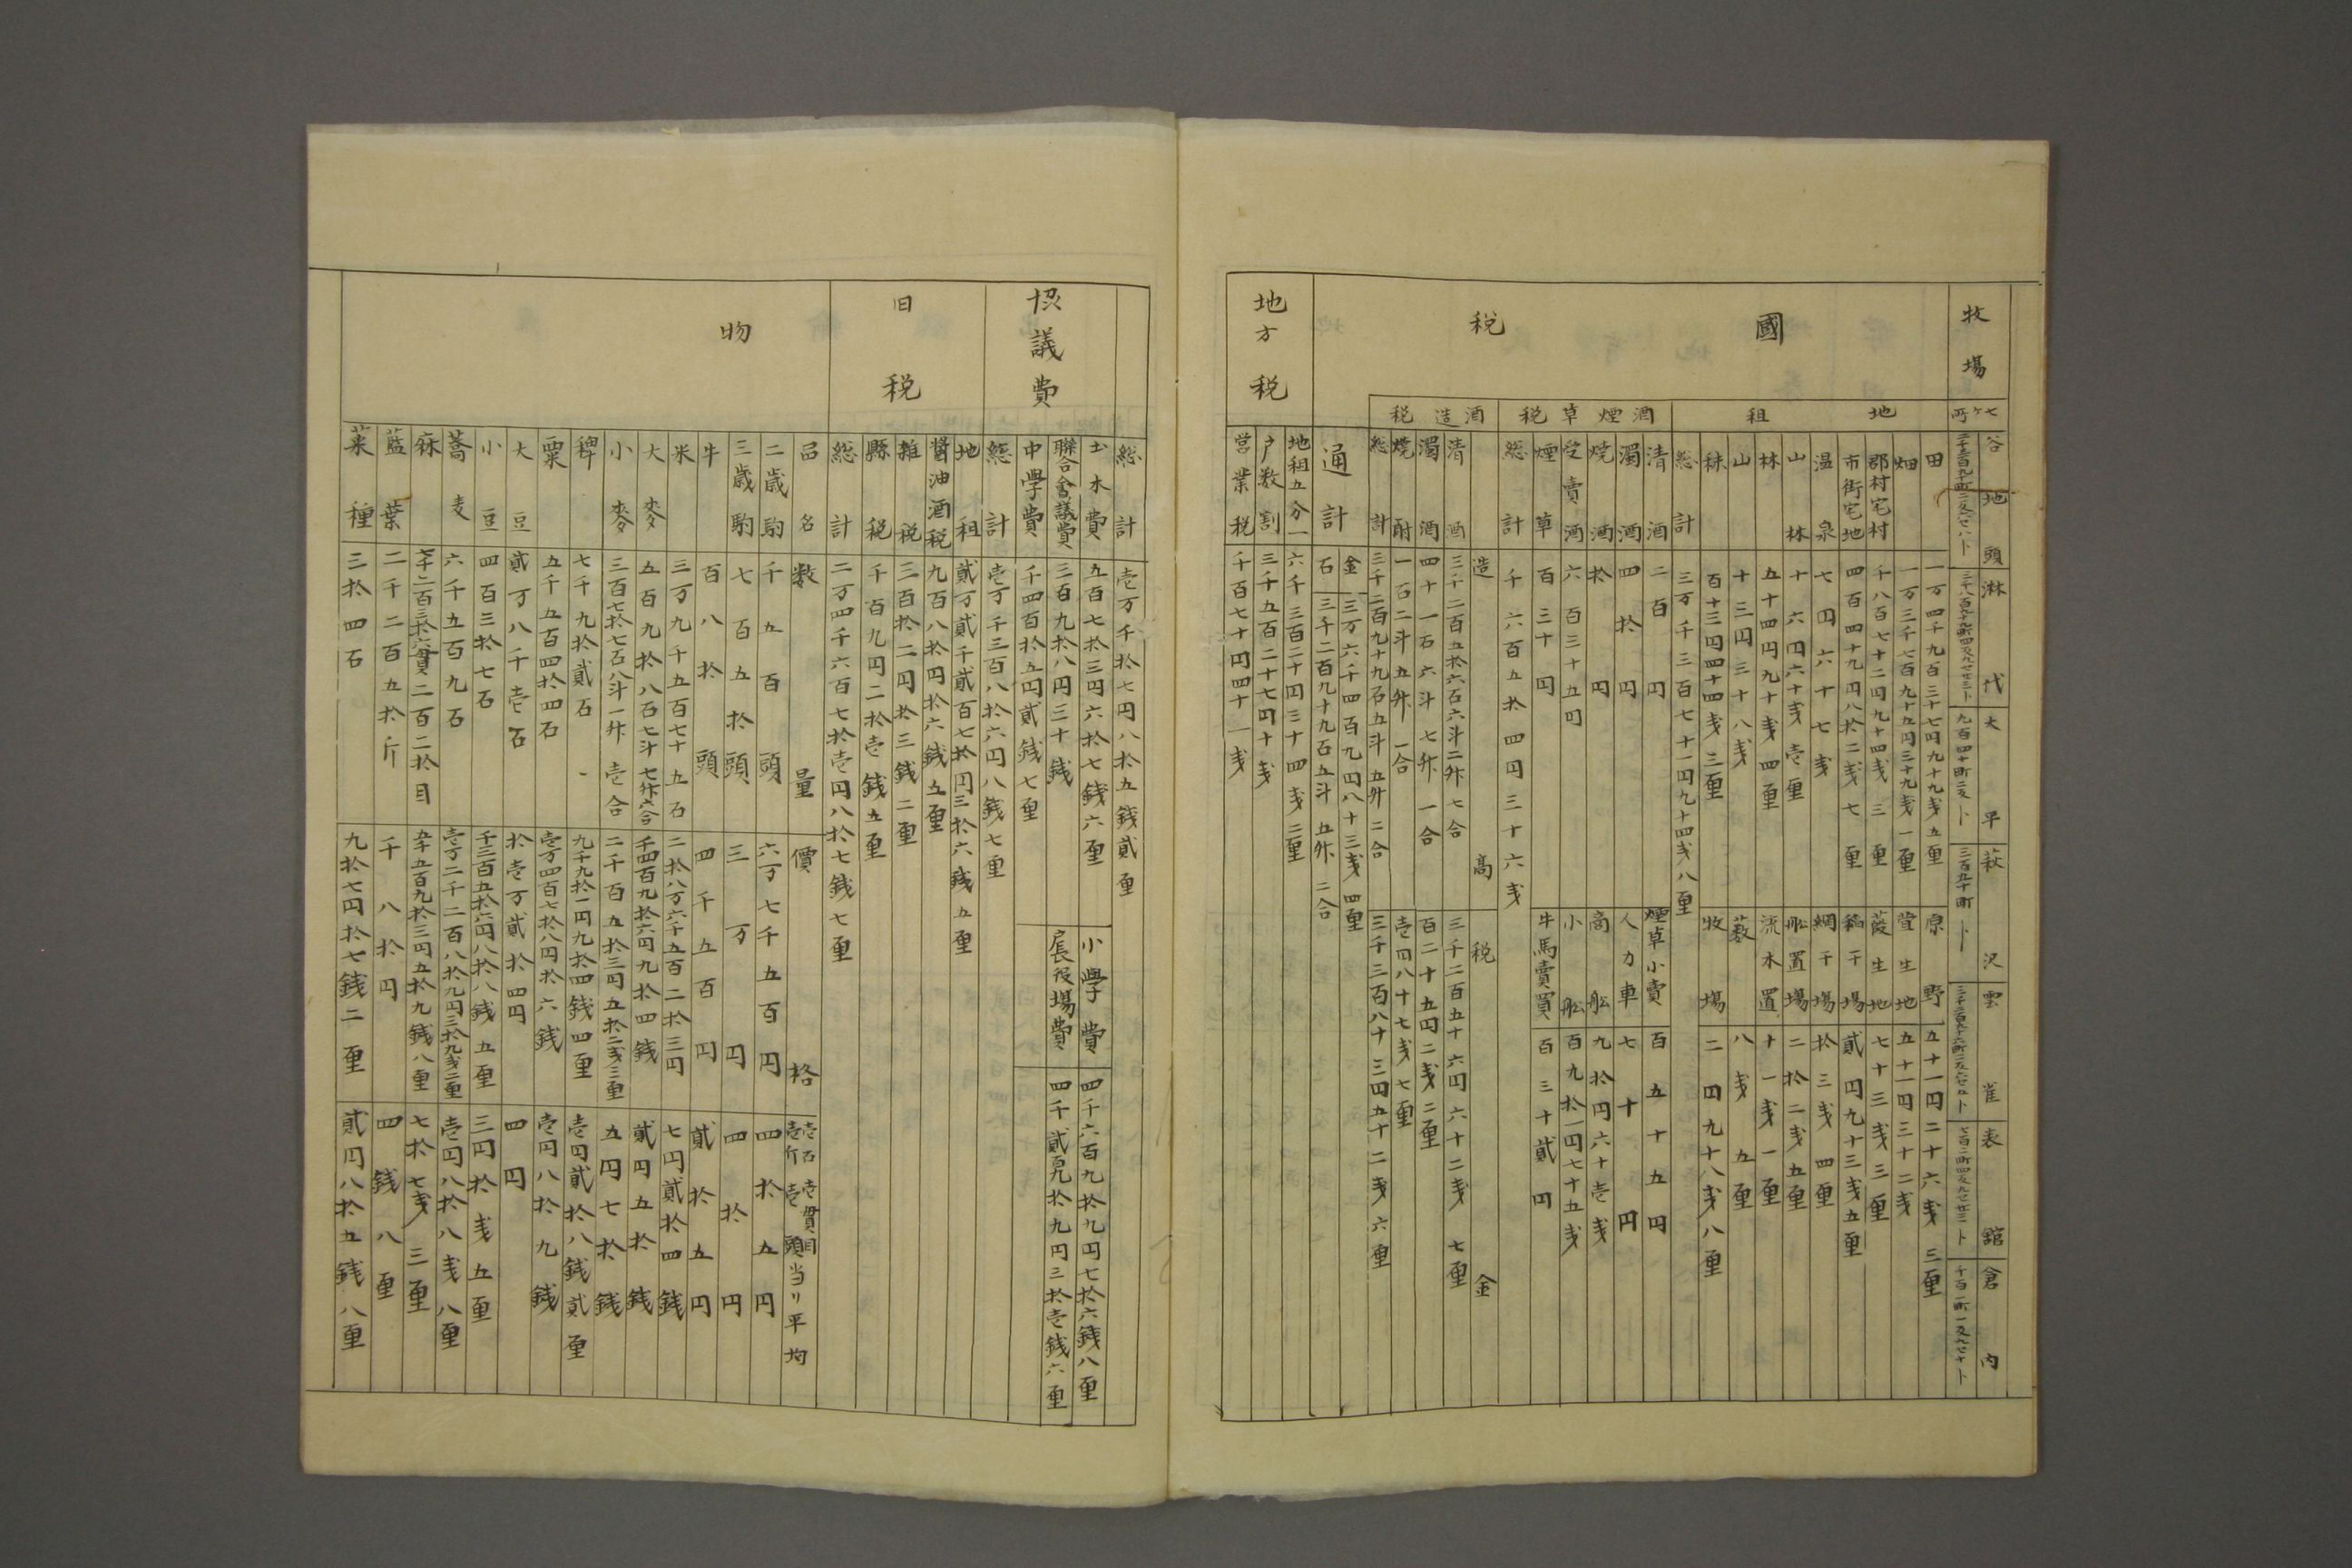 牧場
七ケ所
谷地頭
淋代
三千八百九十九町四反九セ廿三卜
大平
九百四十町二反卜
萩沢
三百五十町卜
雲雀
表舘
七百二町四反九セ廿三卜
倉内
千百二町一反九セ十卜
國税
地租
田 一万四千九百三十七円九十九戔五厘
原野 五十一円二十六戔三厘
畑 一万三千七百九十五円三十九戔一厘
萱生地 五十一円三十二戔
郡村宅村 千八百七十二円九十四戔三厘
葭生地 七十三戔三厘
市街宅地 四百四十九円八拾二戔七厘
稲干場 貳円九十三戔五厘
温泉 七円六十七戔
網干場 拾三戔四厘
山林 十六円六十戔壱厘
舩置場 二拾二戔五厘
林 五十四円九十戔四厘
流木置 十一戔一厘
山 十三円三十八戔
藪 八戔五厘
秣 百十三円四十四戔三厘
牧場 二円九十八戔八厘
総計 三万千三百七十一円九十四戔八厘
酒煙草税
清酒 二百円
煙草小賣 百五十五円
濁酒 四拾円
人力車 七十円
焼酒 拾円
商舩 九拾円六十壱戔
受賣酒 六百三十五円
小舩 百九拾一円七十五戔
煙草 百三十円
牛馬賣買 百三十貳円
総計 千六百五拾四円三十六戔
酒造税
造高 税金
清酒 三千二百五拾六石六斗二舛七合 三千二百五十六円六十二戔七厘
濁酒 四十一石六斗七舛一合 百二十五円二戔二厘
焼酎 一石二斗五舛一合 壱円八十七戔七厘
総計 三千二百九十九石五斗五舛二合 三千三百八十三円五十二戔六厘
通計 金 三万六千四百九円八十三戔四厘
石 三千二百九十九石五斗五舛二合
地方税
地租五分一 六千三百二十円三十四戔二厘
戸数割 三千五百二十七円十戔
営業税 千百七十円四十一戔
総計 壱万千拾七円八拾五銭貳厘
協議費
土木費 五百七拾三円六拾七銭六厘
小學費 四千六百九拾九円七拾六銭八厘
聯合會議費 三百九拾八円三十銭
戸長役場費 四千貳百九拾九円三拾壱銭六厘
中學費 千四百拾五円貳銭七厘
総計 壱万千三百八拾六円八銭七厘
旧税
地租 貳万貳千貳百七拾円三拾六銭五厘
醤油酒税 九百八拾円拾六銭五厘
雑税 三百拾二円拾三銭二厘
縣税 千百九円二拾壱銭五厘
総計 二万四千六百七拾壱円八拾七銭七厘
物
品名 数量 價格 壱石壱貫目壱斤壱頭当リ平均
二歳駒 千五百頭 六万七千五百円 四拾五円
三歳駒 七百五拾頭 三万円 四拾円
牛 百八拾頭 四千五百円 貳拾五円
米 三万九千五百七十五石 二拾八万六千五百二拾三円 七円貳拾四銭
大麥 五百九拾八石七斗七舛六合 千四百九拾六円九拾四銭 貳円五拾銭
小麥 三百七拾七石八斗一舛壱合 二千百五拾三円五拾二戔三厘 五円七拾銭
稗 七千九拾貳石 九千九拾一円九拾四銭四厘 壱円貳拾八銭貳厘
粟 五千五百四拾四石 壱万四百七拾八円拾六銭 壱円八拾九銭
大豆 貳万八千壱石 拾壱万貳拾四円 四円
小豆 四百三拾七石 千三百五拾六円八拾八銭五厘 三円拾戔五厘
蕎麦 六千五百九石 壱万二千二百八拾九円三拾九戔二厘 壱円八拾八戔八厘
麻 七千二百三拾六貫二百二拾目 五千五百九拾三円五拾九銭八厘 七拾七戔三厘
藍葉 二千二百五拾斤 千八拾円 四銭八厘
菜種 三拾四石 九拾七円拾七銭二厘 貳円八拾五銭八厘